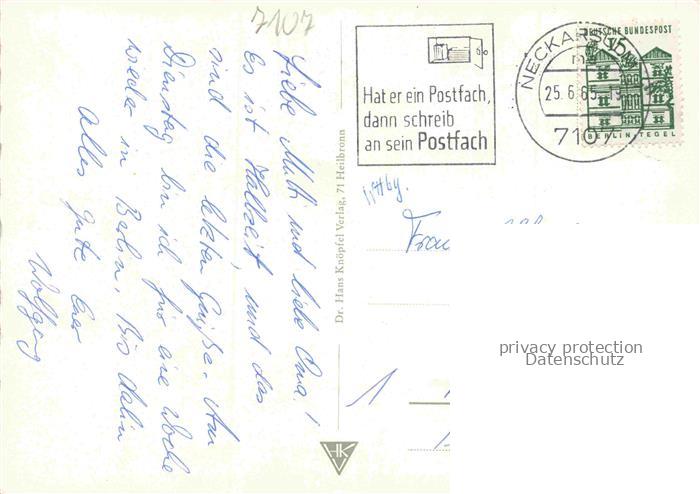 7107
Liebe Mutti und liebe Oma!
Es ist Halbzeit, und das
sind die letzten Grüße. Am
Dienstag bin ich für eine Woche
wieder in Berlin. Bis dahin
alles Gute Euer
Wolfgang
Dr. Hans Knöpfel Verlag, 71 Heilbronn
HK
Hat er ein Postfach,
dann schreib
an sein Postfach
NECKARSULM
25.6.65
7107
DEUTSCHE BUNDESPOST
BERLIN-TEGEL
Frau
1
privacy protection
Datenschutz